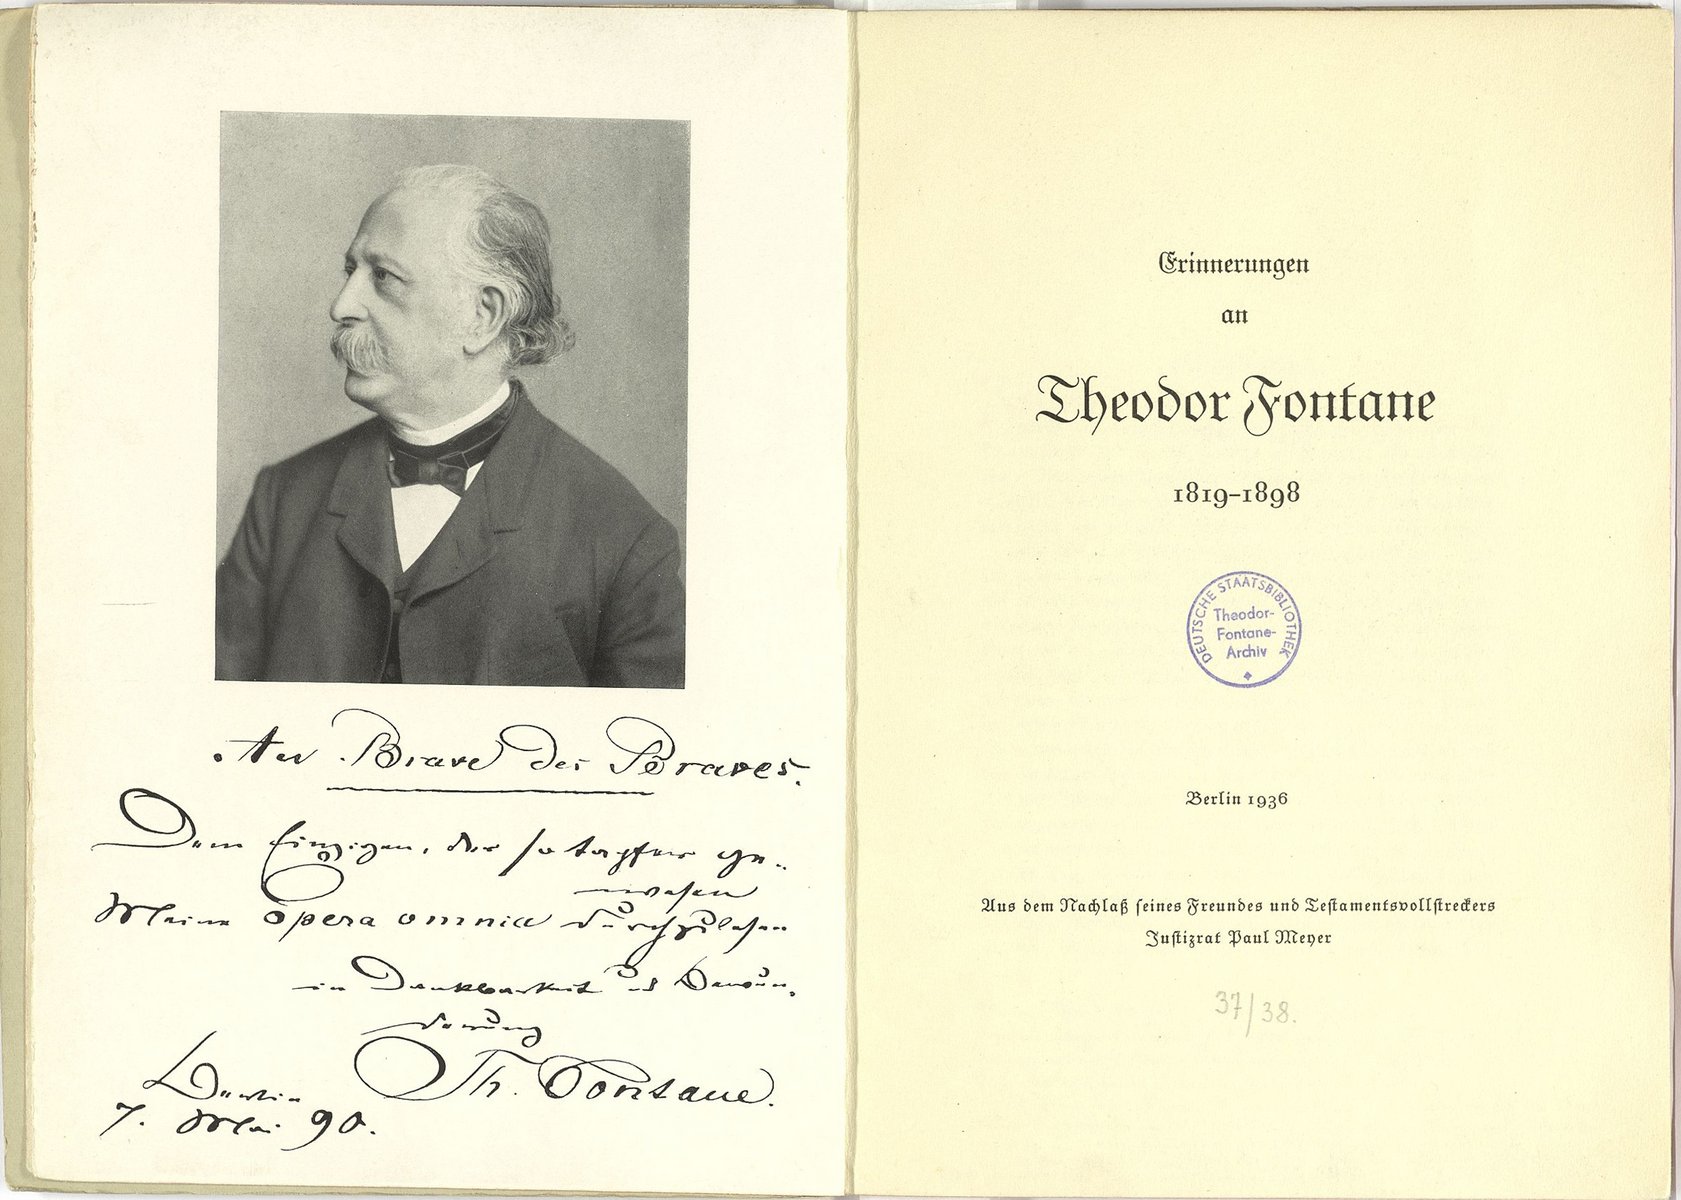 Au Brave des Braves.
Dem Einzigen, der so tapfer ge-
wesen
Meine Opera omnia durchzulesen
in Dankbarkeit und Bewun-
derung
Th. Fontane.
Berlin
7. Mai 90.
Erinnerungen
an
Theodor Fontane
1819–1898
DEUTSCHE STAATSBIBLIOTHEK
Theodor-
Fontane-
Archiv
Berlin 1936
Aus dem Nachlaß seines Freundes und Testamentsvollstreckers
Justizrat Paul Meyer
37/38.